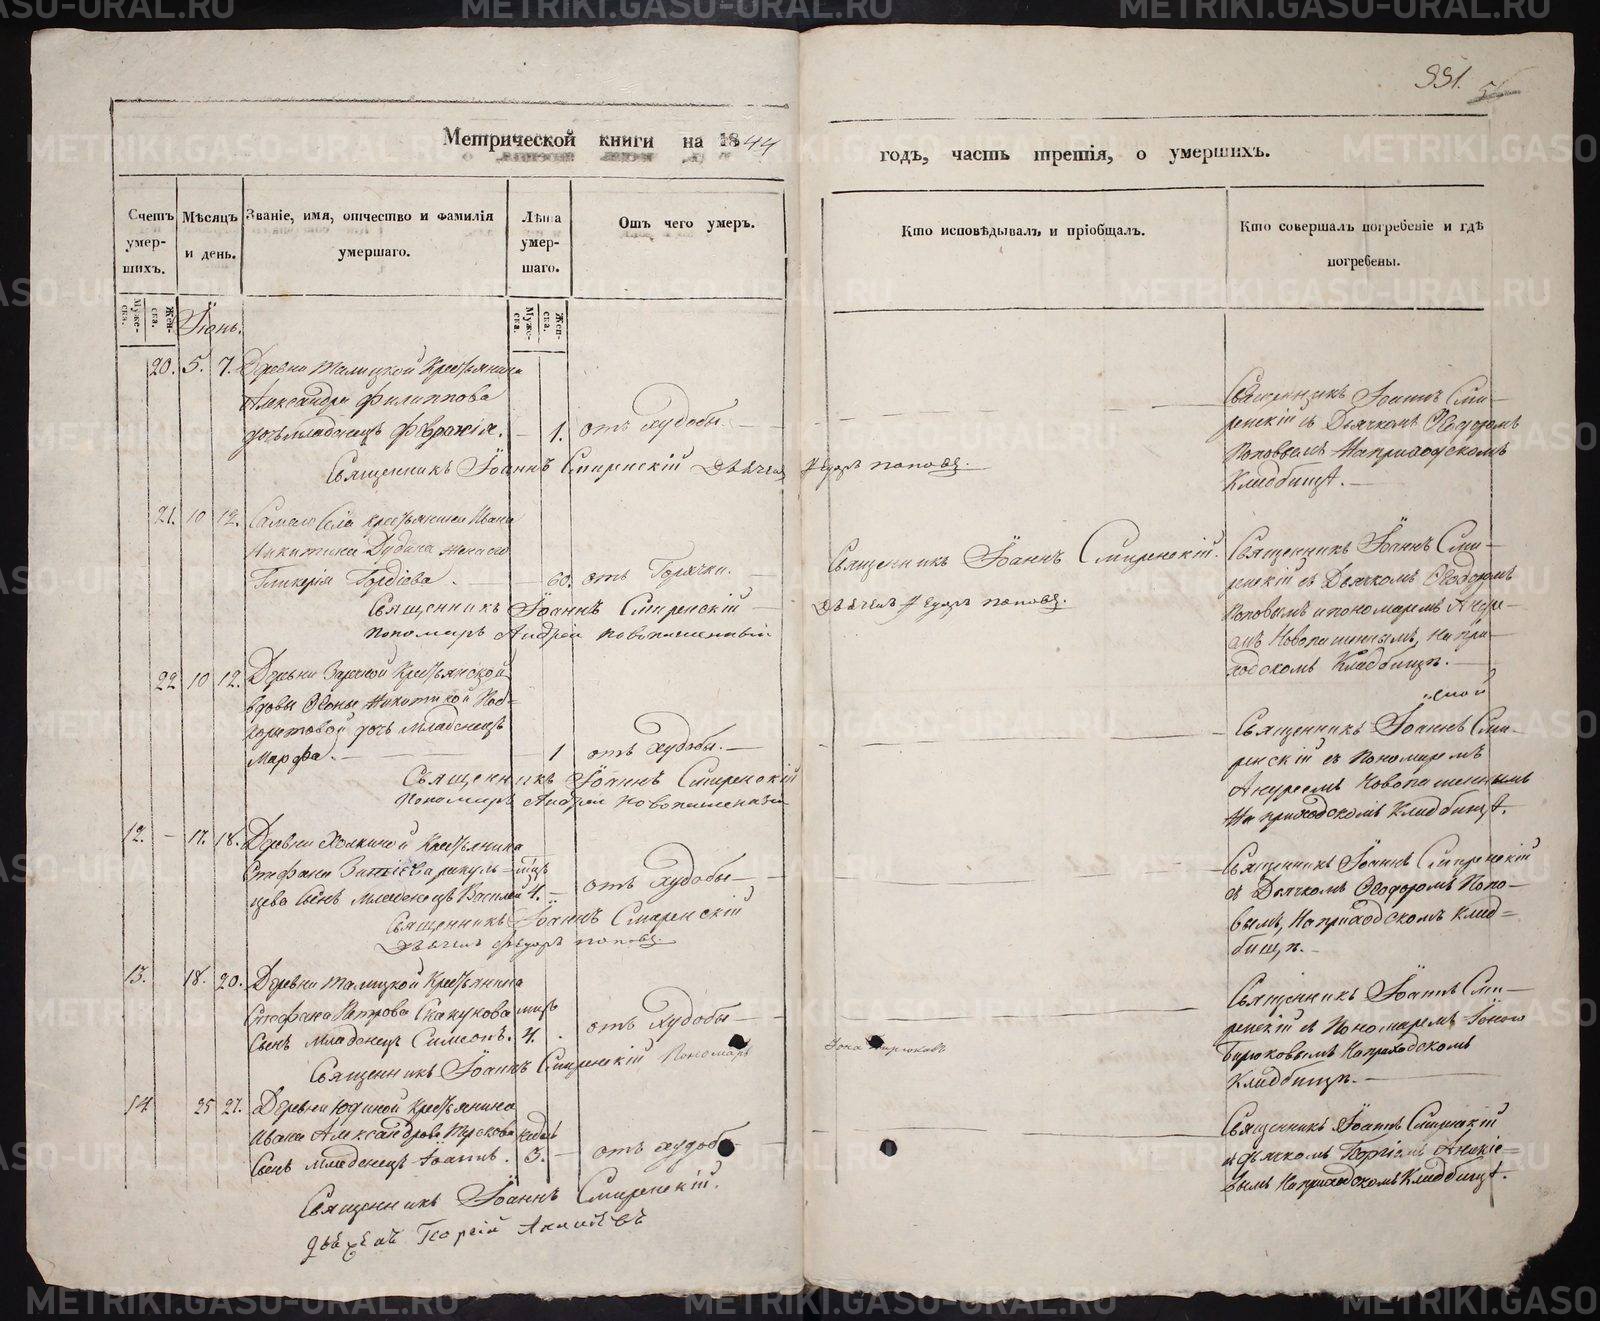 METRIKI.GASU-URAL.RU
551.
Метрической книги на 1844
годъ, часть третія, о умершихъ.
Счетъ умер-шихъ.
Мѣсяцъ и день.
Званіе, имя, отчество и фамилія умершаго.
Лѣта умер-шаго.
Отъ чего умеръ.
Кто исповѣдывалъ и пріобщалъ.
Кто совершалъ погребеніе и гдѣ погребены.
Муже-ска.
Жен-ска.
Муже-ска.
Жен-ска.
Іюнь.
20. 5. 7. Деревни Талицкой Крестьянина
Александра Филиппова
дочь младенецъ 1. отъ худобы.
Священникъ Іоаннъ Смиренскій Дьячекъ Федоръ Поповъ.
Священникъ Іоаннъ Сми-
ренскій съ Дьячкомъ Ѳеодоромъ
Поповымъ на приходскомъ
Кладбищѣ.
21. 10 12. Самаго Села крестьянина Ивана
Никитина жена его
Гликерія Гордѣева. 60. отъ Горячки.
Священникъ Іоаннъ Смиренскій
Пономарь Андрей Новопашенный
Священникъ Іоаннъ Смиренскій.
Дьячекъ Федоръ Поповъ.
Священникъ Іоаннъ Сми-
ренскій съ Дьячкомъ Ѳеодоромъ
Поповымъ и пономаремъ Андре-
емъ Новопашеннымъ, на при-
ходскомъ Кладбищѣ.
22 10 12. Деревни Крестьянской
вдовы Никитиной
дочь младенецъ
Марфа. 1 отъ худобы.
Священникъ Іоаннъ Смиренскій
Пономарь Андрей Новопашенный
Священникъ Іоаннъ Сми-
ренскій съ Пономаремъ
Андреемъ Новопашеннымъ
на приходскомъ Кладбищѣ.
12. 17. 18. Деревни Крестьянина
Стефана
сынъ младенецъ Василей 4. отъ худобы
Священникъ Іоаннъ Смиренскій
Дьячекъ Федоръ Поповъ.
Священникъ Іоаннъ Смиренскій
съ Дьячкомъ Ѳеодоромъ Попо-
вымъ, на приходскомъ Клад-
бищѣ.
13. 18. 20. Деревни Талицкой Крестьянина
Стефана Петрова
сынъ младенецъ Симеонъ. 4. отъ худобы
Священникъ Іоаннъ Смиренскій Пономарь
Іона Бирюковъ
Священникъ Іоаннъ Сми-
ренскій съ Пономаремъ Іоною
Бирюковымъ на приходскомъ
Кладбищѣ.
14 25 27. Деревни Юдиной Крестьянина
Ивана Александрова недѣль
сынъ младенецъ Іоаннъ. 3. отъ худобы
Священникъ Іоаннъ Смиренскій.
Дьячекъ Георгій
Священникъ Іоаннъ Смиренскій
съ дьячкомъ Георгіемъ
на приходскомъ Кладбищѣ.